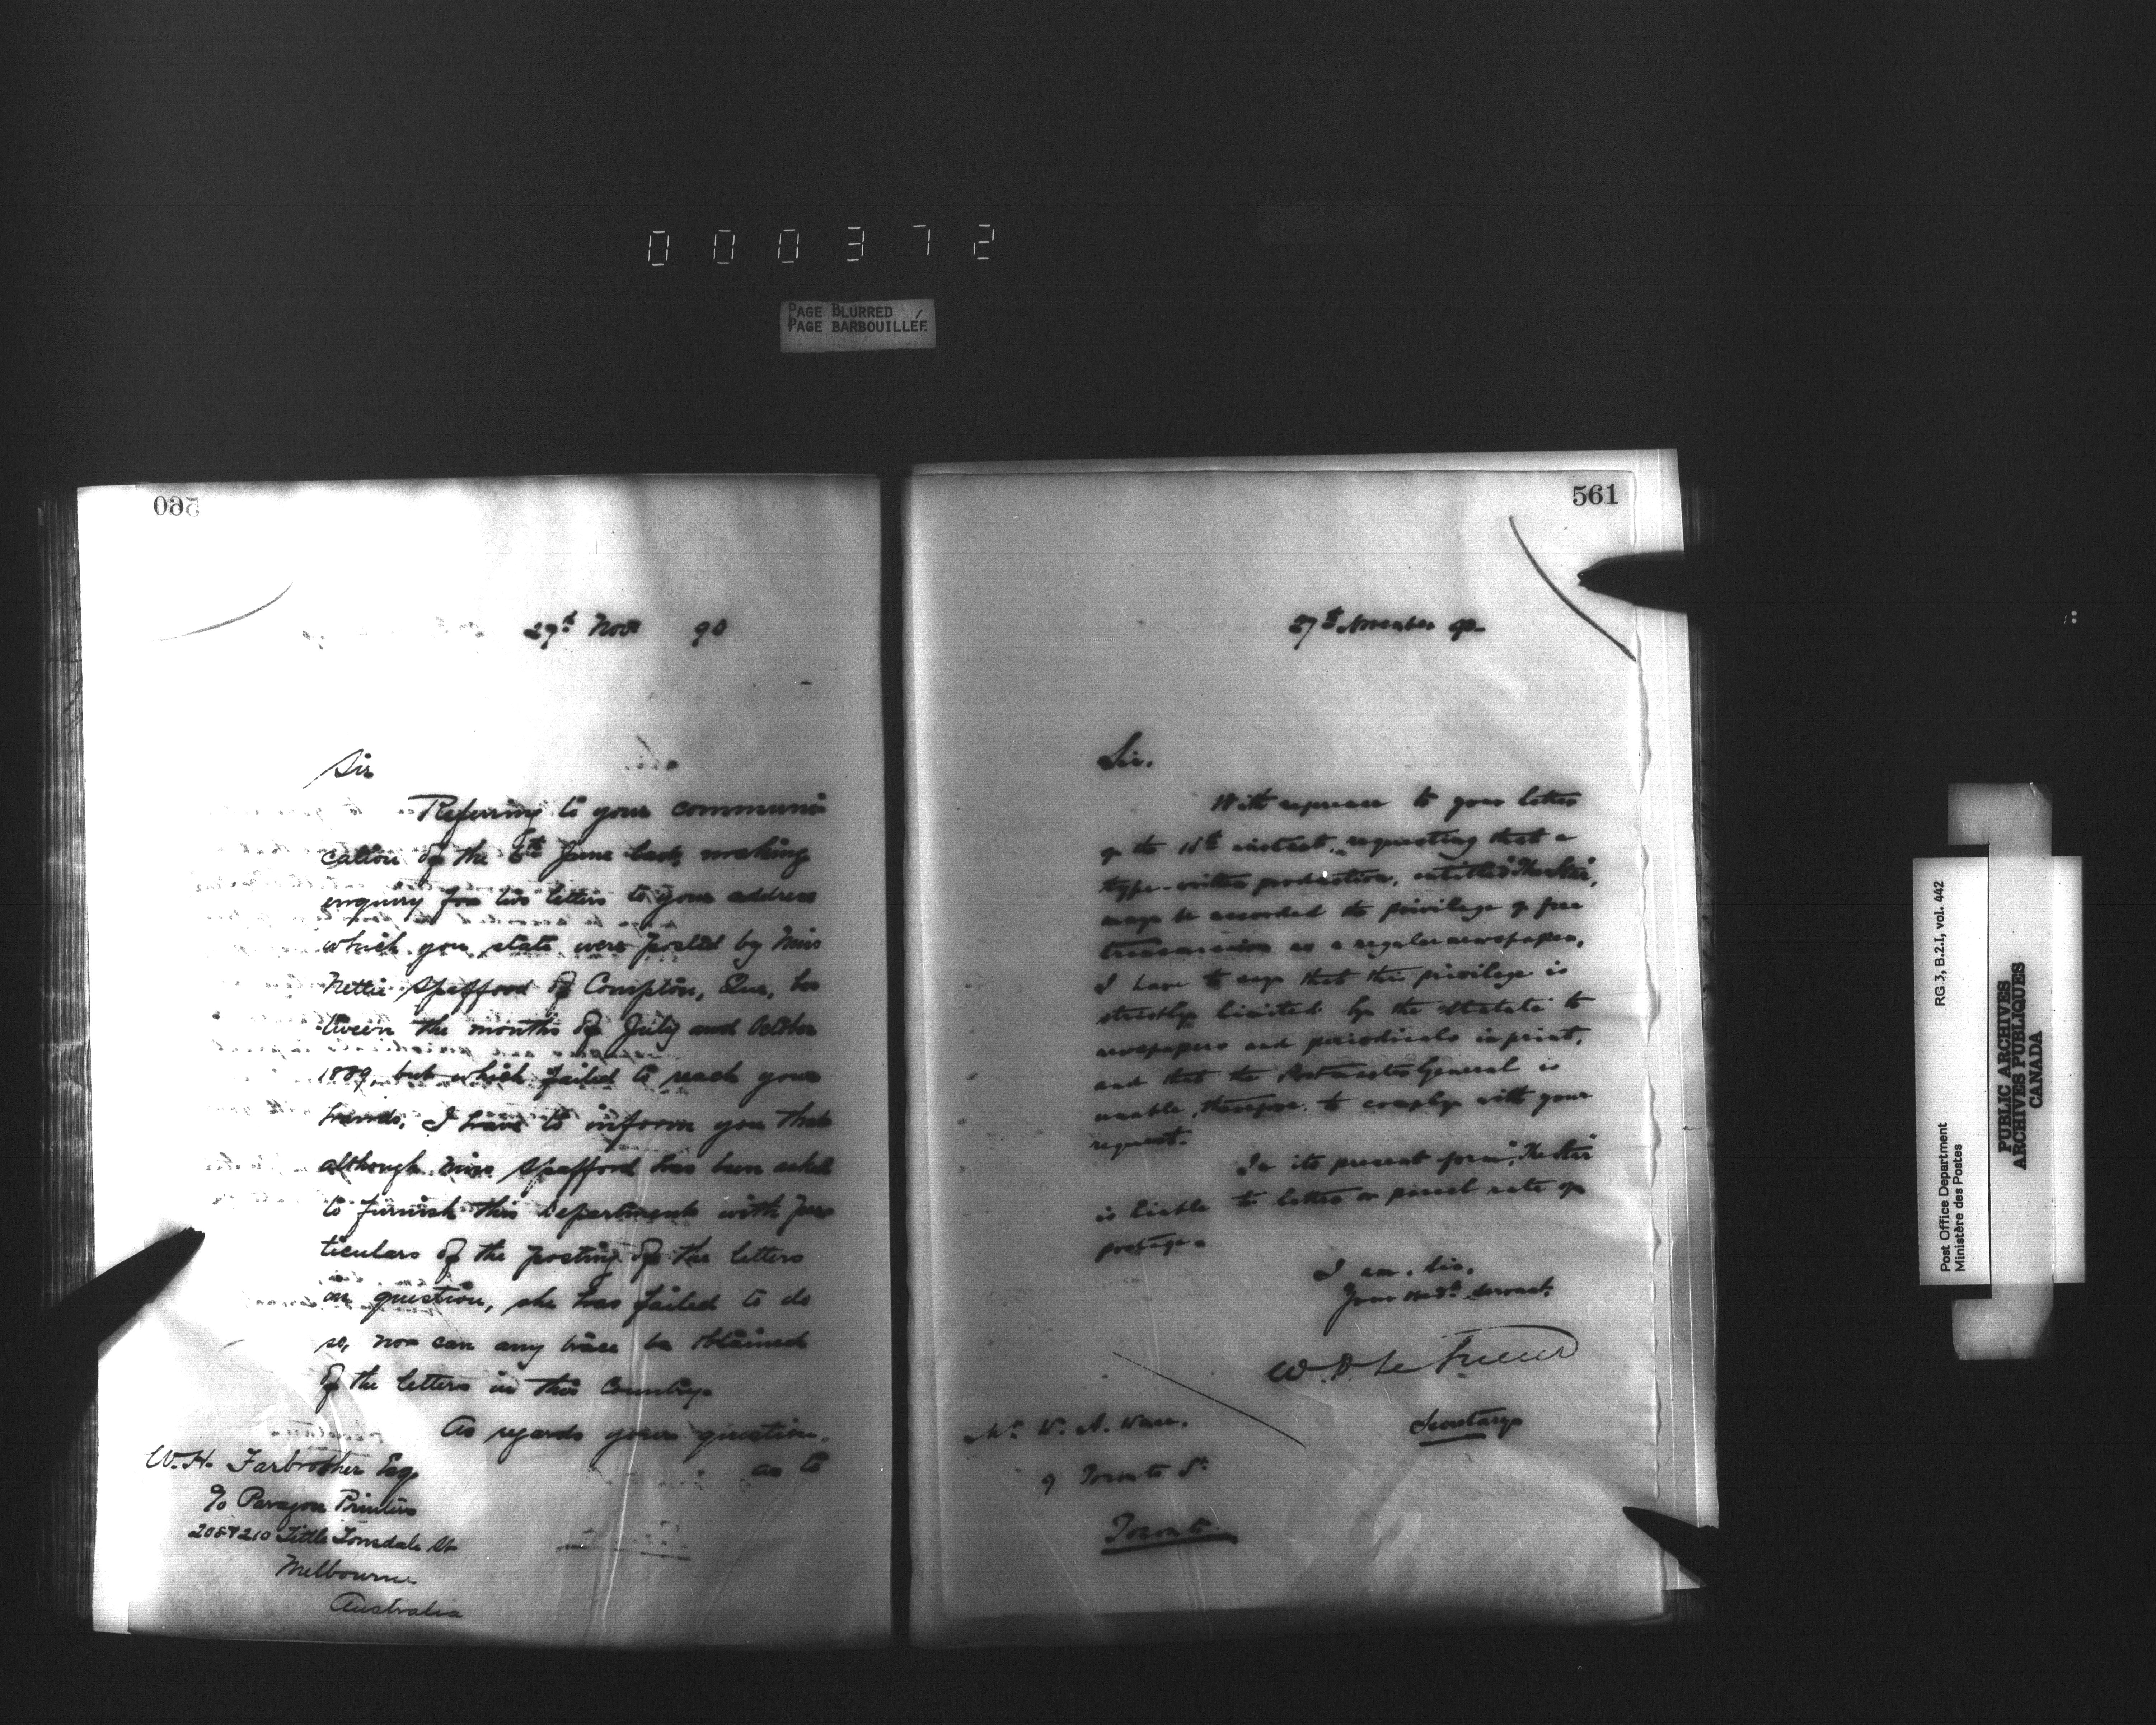 000372
PAGE BLURRED
PAGE BARBOUILLÉE
560
27th Novr 90
Sir
Referring to your communi
cation of the 6th June last, making
enquiry for two letters to your address
which you state were posted by Miss
Nettie Spafford of Compton, Que, be
tween the months of July and October
1889, but which failed to reach your
hands, I have to inform you that
although Miss Spafford has been asked
to furnish this Department with par
ticulars of the posting of the letters
in question, she has failed to do
so, nor can any trace be obtained
of the letters in this Country.
As regards your question,
as to
W. H. Farbrother Esq
c/o Paragon Printers
208 & 210 Little Lonsdale St
Melbourne
Australia
561
27th November 90.
Sir.
With reference to your letter
of the 18th instant, requesting that a
type-written production, entitled "The Star",
may be accorded the privilege of free
transmission as a regular newspaper,
I have to say that this privilege is
strictly limited by the Statute to
newspapers and periodicals in print,
and that the Postmaster General is
unable, therefore, to comply with your
request.
In its present form, "The Star"
is liable to letter or parcel rate of
postage.
I am, Sir,
Your obedt. Servant.
W. D. LeSueur
Secretary
Mr. W. A.
9 Toronto St.
Toronto.
Post Office Department
Ministère des Postes
RG 3, B.2.I, vol. 442
PUBLIC ARCHIVES
ARCHIVES PUBLIQUES
CANADA